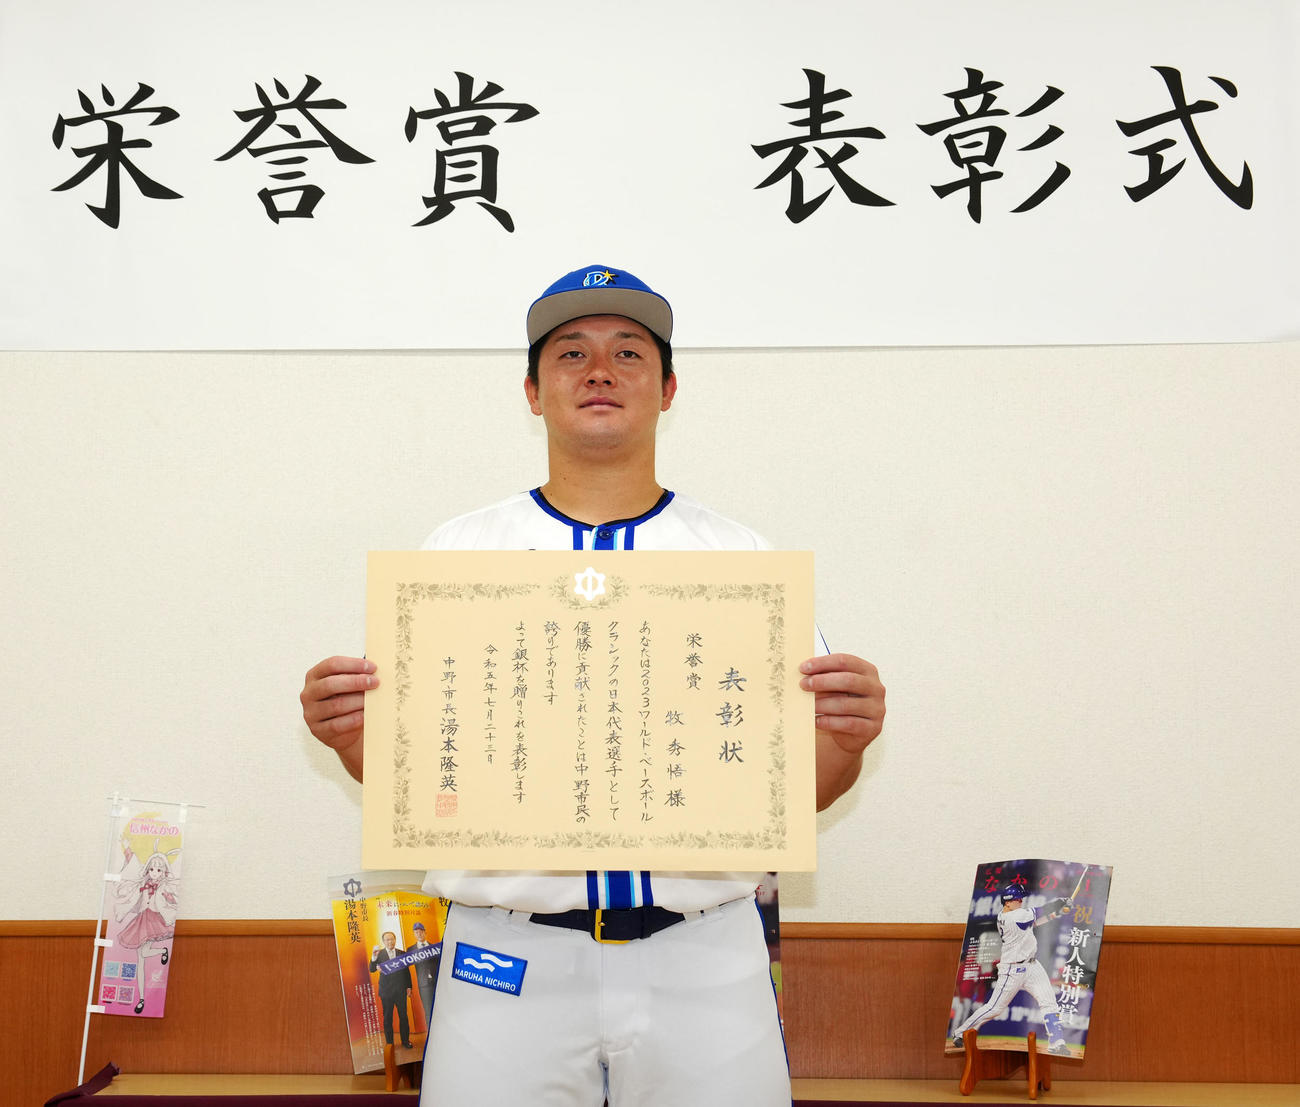 栄誉賞　表彰式
表彰状
栄誉賞
牧秀悟様
あなたは2023ワールド・ベースボール
クラシックの日本代表選手として
優勝に貢献されたことは中野市民の
誇りであります
よって銀杯を贈りこれを表彰します
令和五年七月二十三日
中野市長湯本隆英
MARUHA NICHIRO
信州なかの
中野市長
湯本隆英
新春特別対談
牧
YOKOHAMA
広報
なかの
祝
新人特別賞